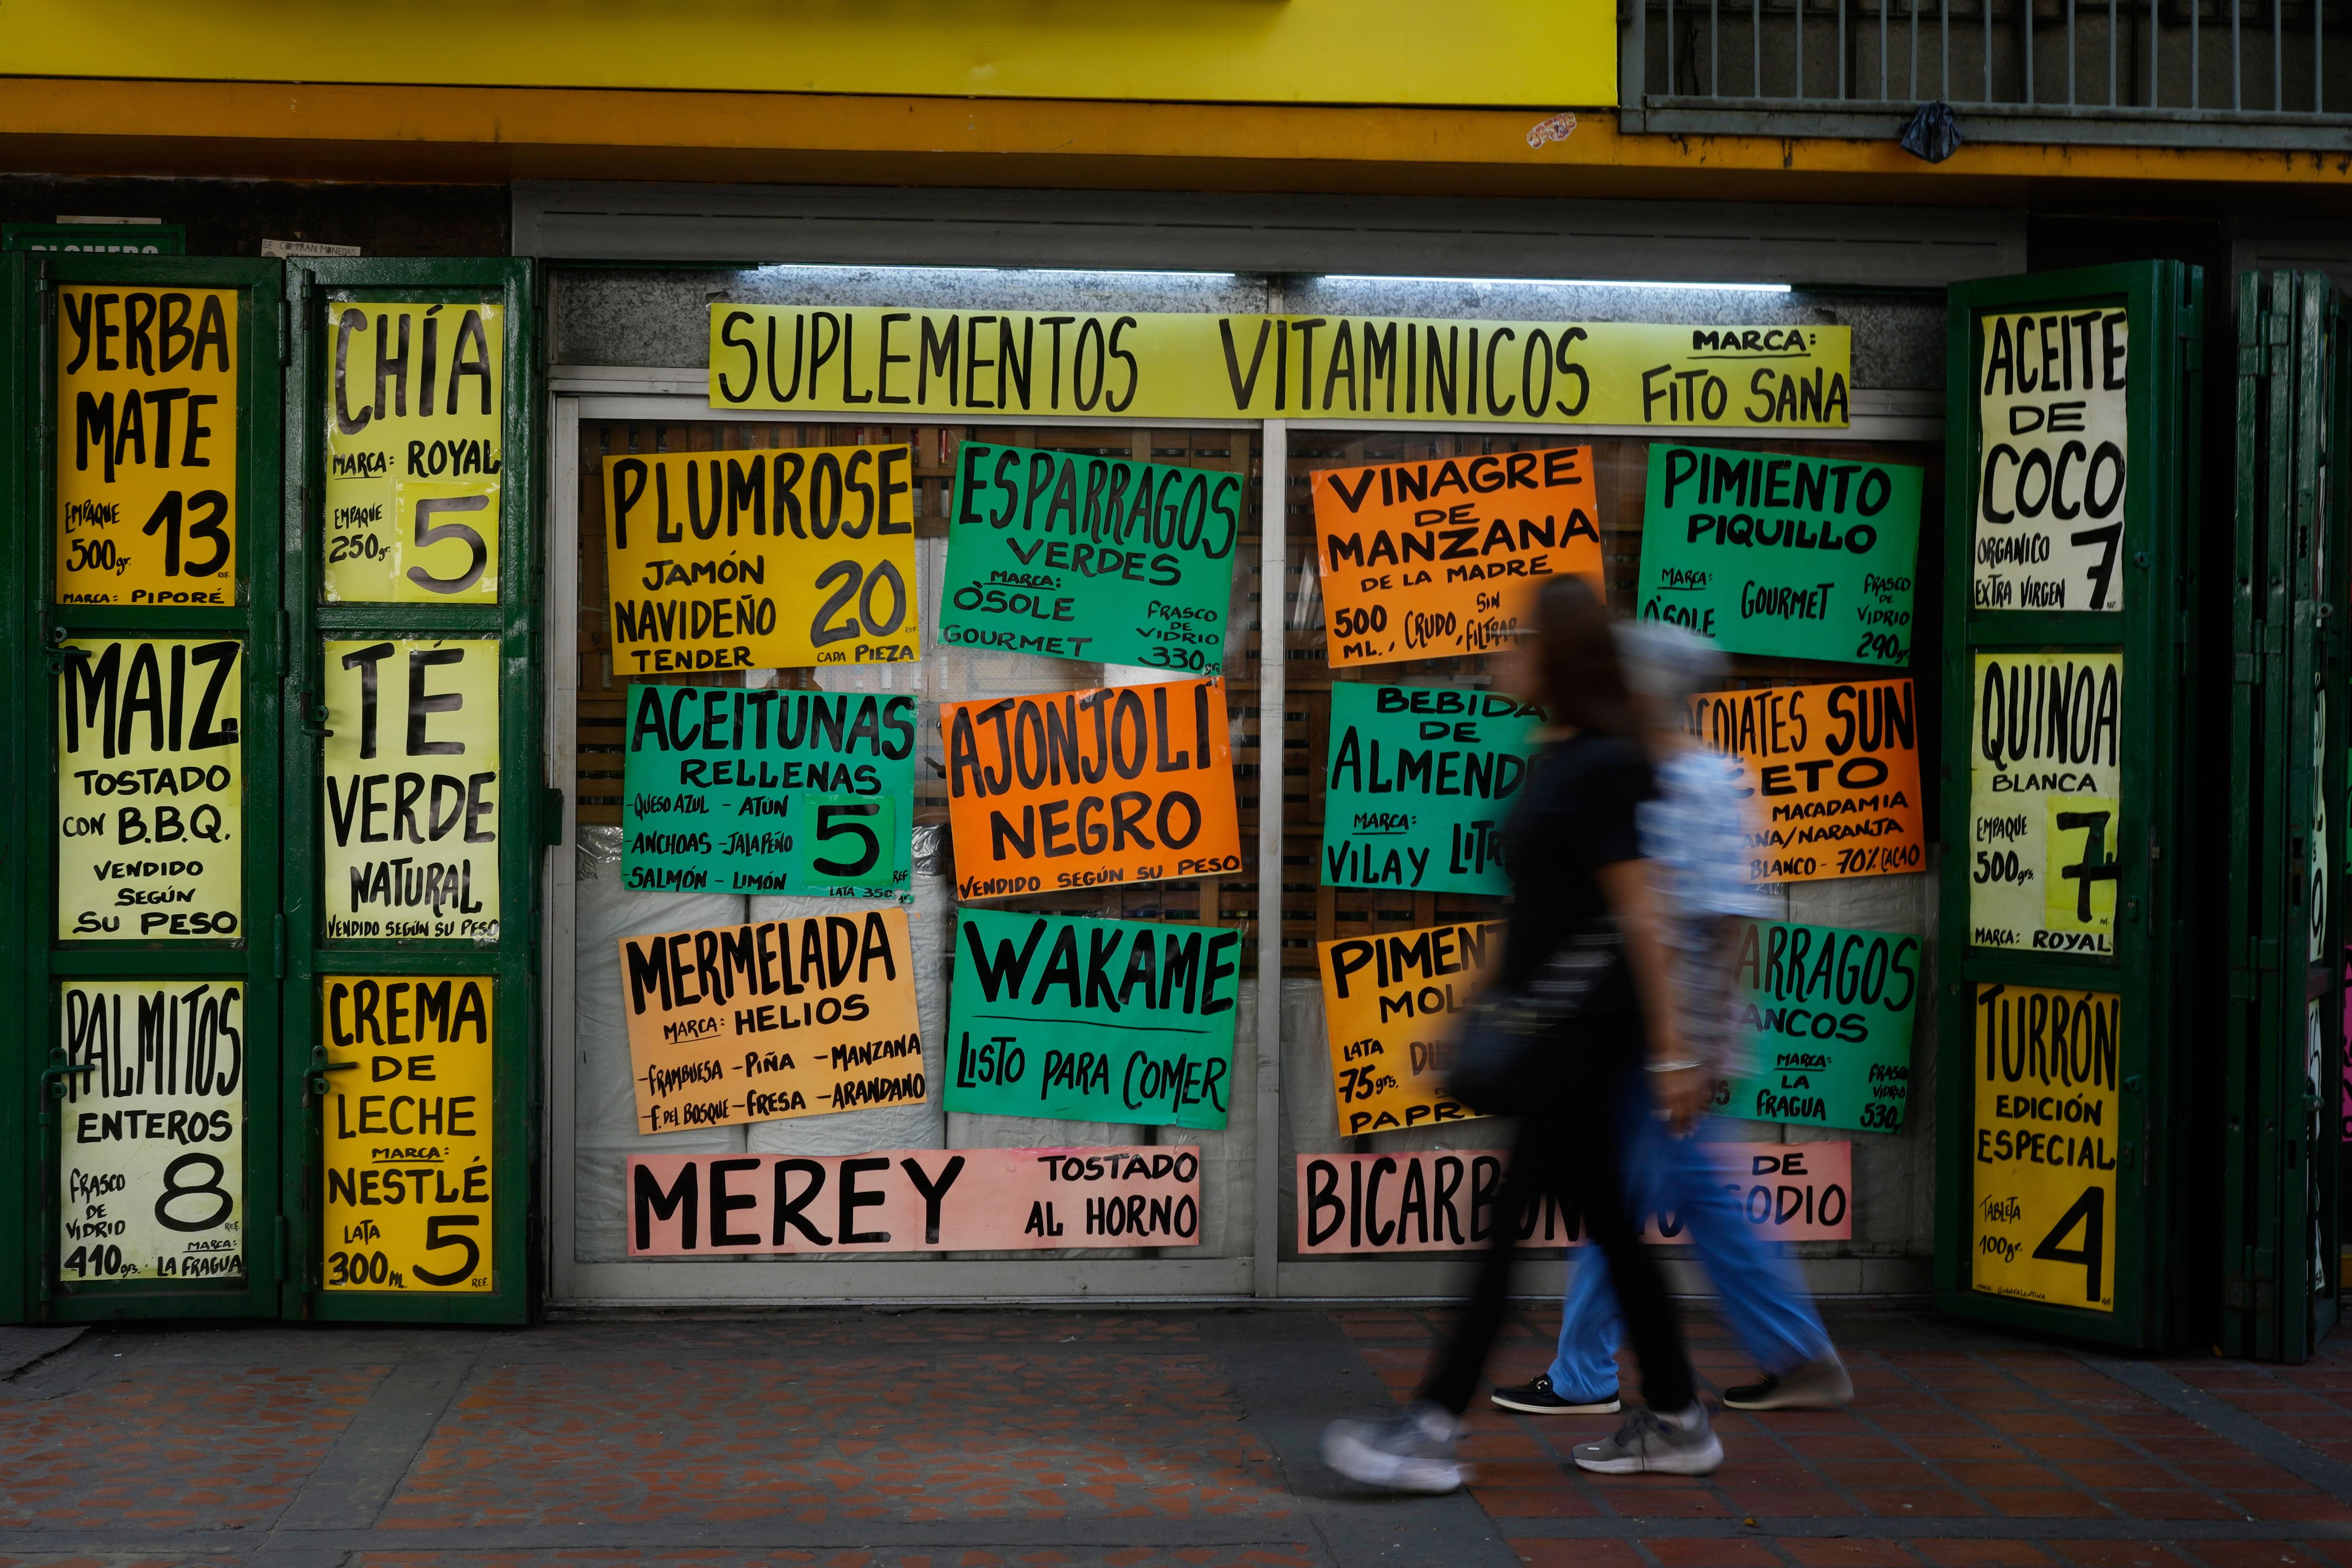 SE COMPRAN MONEDAS
YERBA
MATE
EMPAQUE
500gr.
13
REF.
MARCA: PIPORÉ
MAIZ
TOSTADO
CON B.B.Q.
VENDIDO
SEGÚN
SU PESO
PALMITOS
ENTEROS
FRASCO
DE
VIDRIO
410grs.
8
REF.
MARCA:
LA FRAGUA
CHÍA
MARCA: ROYAL
EMPAQUE
250gr.
5
TÉ
VERDE
NATURAL
VENDIDO SEGÚN SU PESO
CREMA
DE
LECHE
MARCA:
NESTLÉ
LATA
300 ML.
5
REF.
SUPLEMENTOS VITAMINICOS
MARCA:
FITO SANA
PLUMROSE
JAMÓN
NAVIDEÑO
TENDER
20
REF.
CADA PIEZA
ESPARRAGOS
VERDES
MARCA:
O'SOLE
GOURMET
FRASCO
DE
VIDRIO
330grs.
VINAGRE
DE
MANZANA
DE LA MADRE
500
ML., CRUDO, SIN
FILTRAR
PIMIENTO
PIQUILLO
MARCA:
O'SOLE
GOURMET
FRASCO
DE
VIDRIO
290gr.
ACEITUNAS
RELLENAS
-QUESO AZUL - ATÚN
-ANCHOAS -JALAPEÑO
-SALMÓN - LIMÓN
5
REF
LATA 350gr.
AJONJOLI
NEGRO
VENDIDO SEGÚN SU PESO
BEBIDA
DE
ALMEND
MARCA:
VILAY
LITR
OCOLATES SUN
ETO
MACADAMIA
ANA/NARANJA
BLANCO - 70% CACAO
MERMELADA
MARCA: HELIOS
-FRAMBUESA -PIÑA -MANZANA
-F. DEL BOSQUE -FRESA -ARANDANO
WAKAME
LISTO PARA COMER
PIMEN
MOL
LATA
75grs.
DU
PAPR
ARRAGOS
ANCOS
MARCA:
LA
FRAGUA
FRASCO
VIDRIO
530
MEREY
TOSTADO
AL HORNO
BICARBONATO
DE
SODIO
ACEITE
DE
COCO
ORGANICO
EXTRA VIRGEN
7
REF.
QUINOA
BLANCA
EMPAQUE
500grs.
7
REF.
MARCA: ROYAL
TURRÓN
EDICIÓN
ESPECIAL
TABLETA
100gr.
4
REF
MARCA: GIANVALENTINA